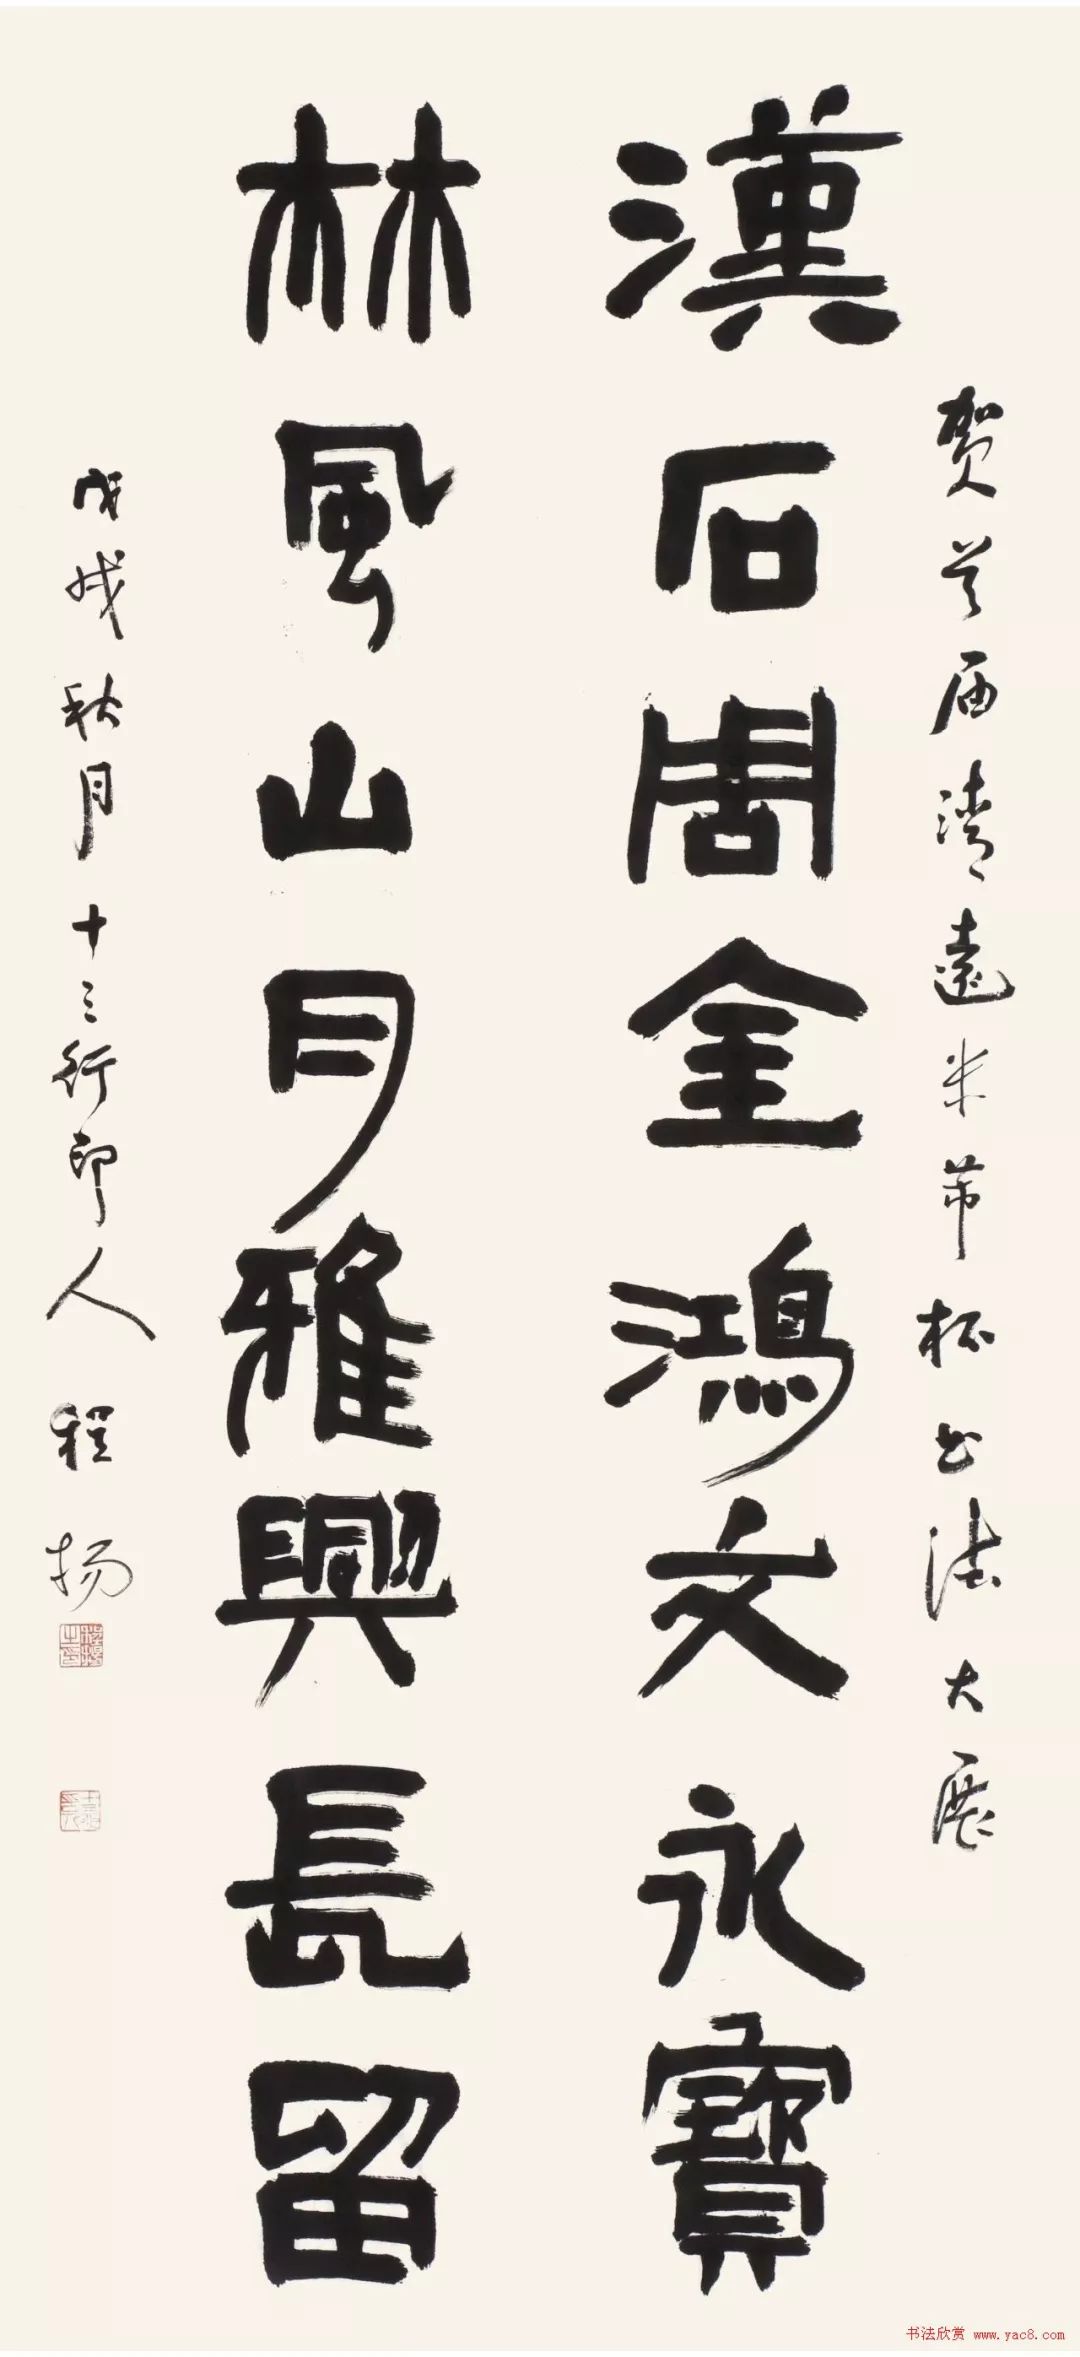 贺首届清远米芾杯书法大展
漢石周金鴻文永寶
林風山月雅興長留
戊戌秋月十三行印人程扬
书法欣赏 www.yac8.com